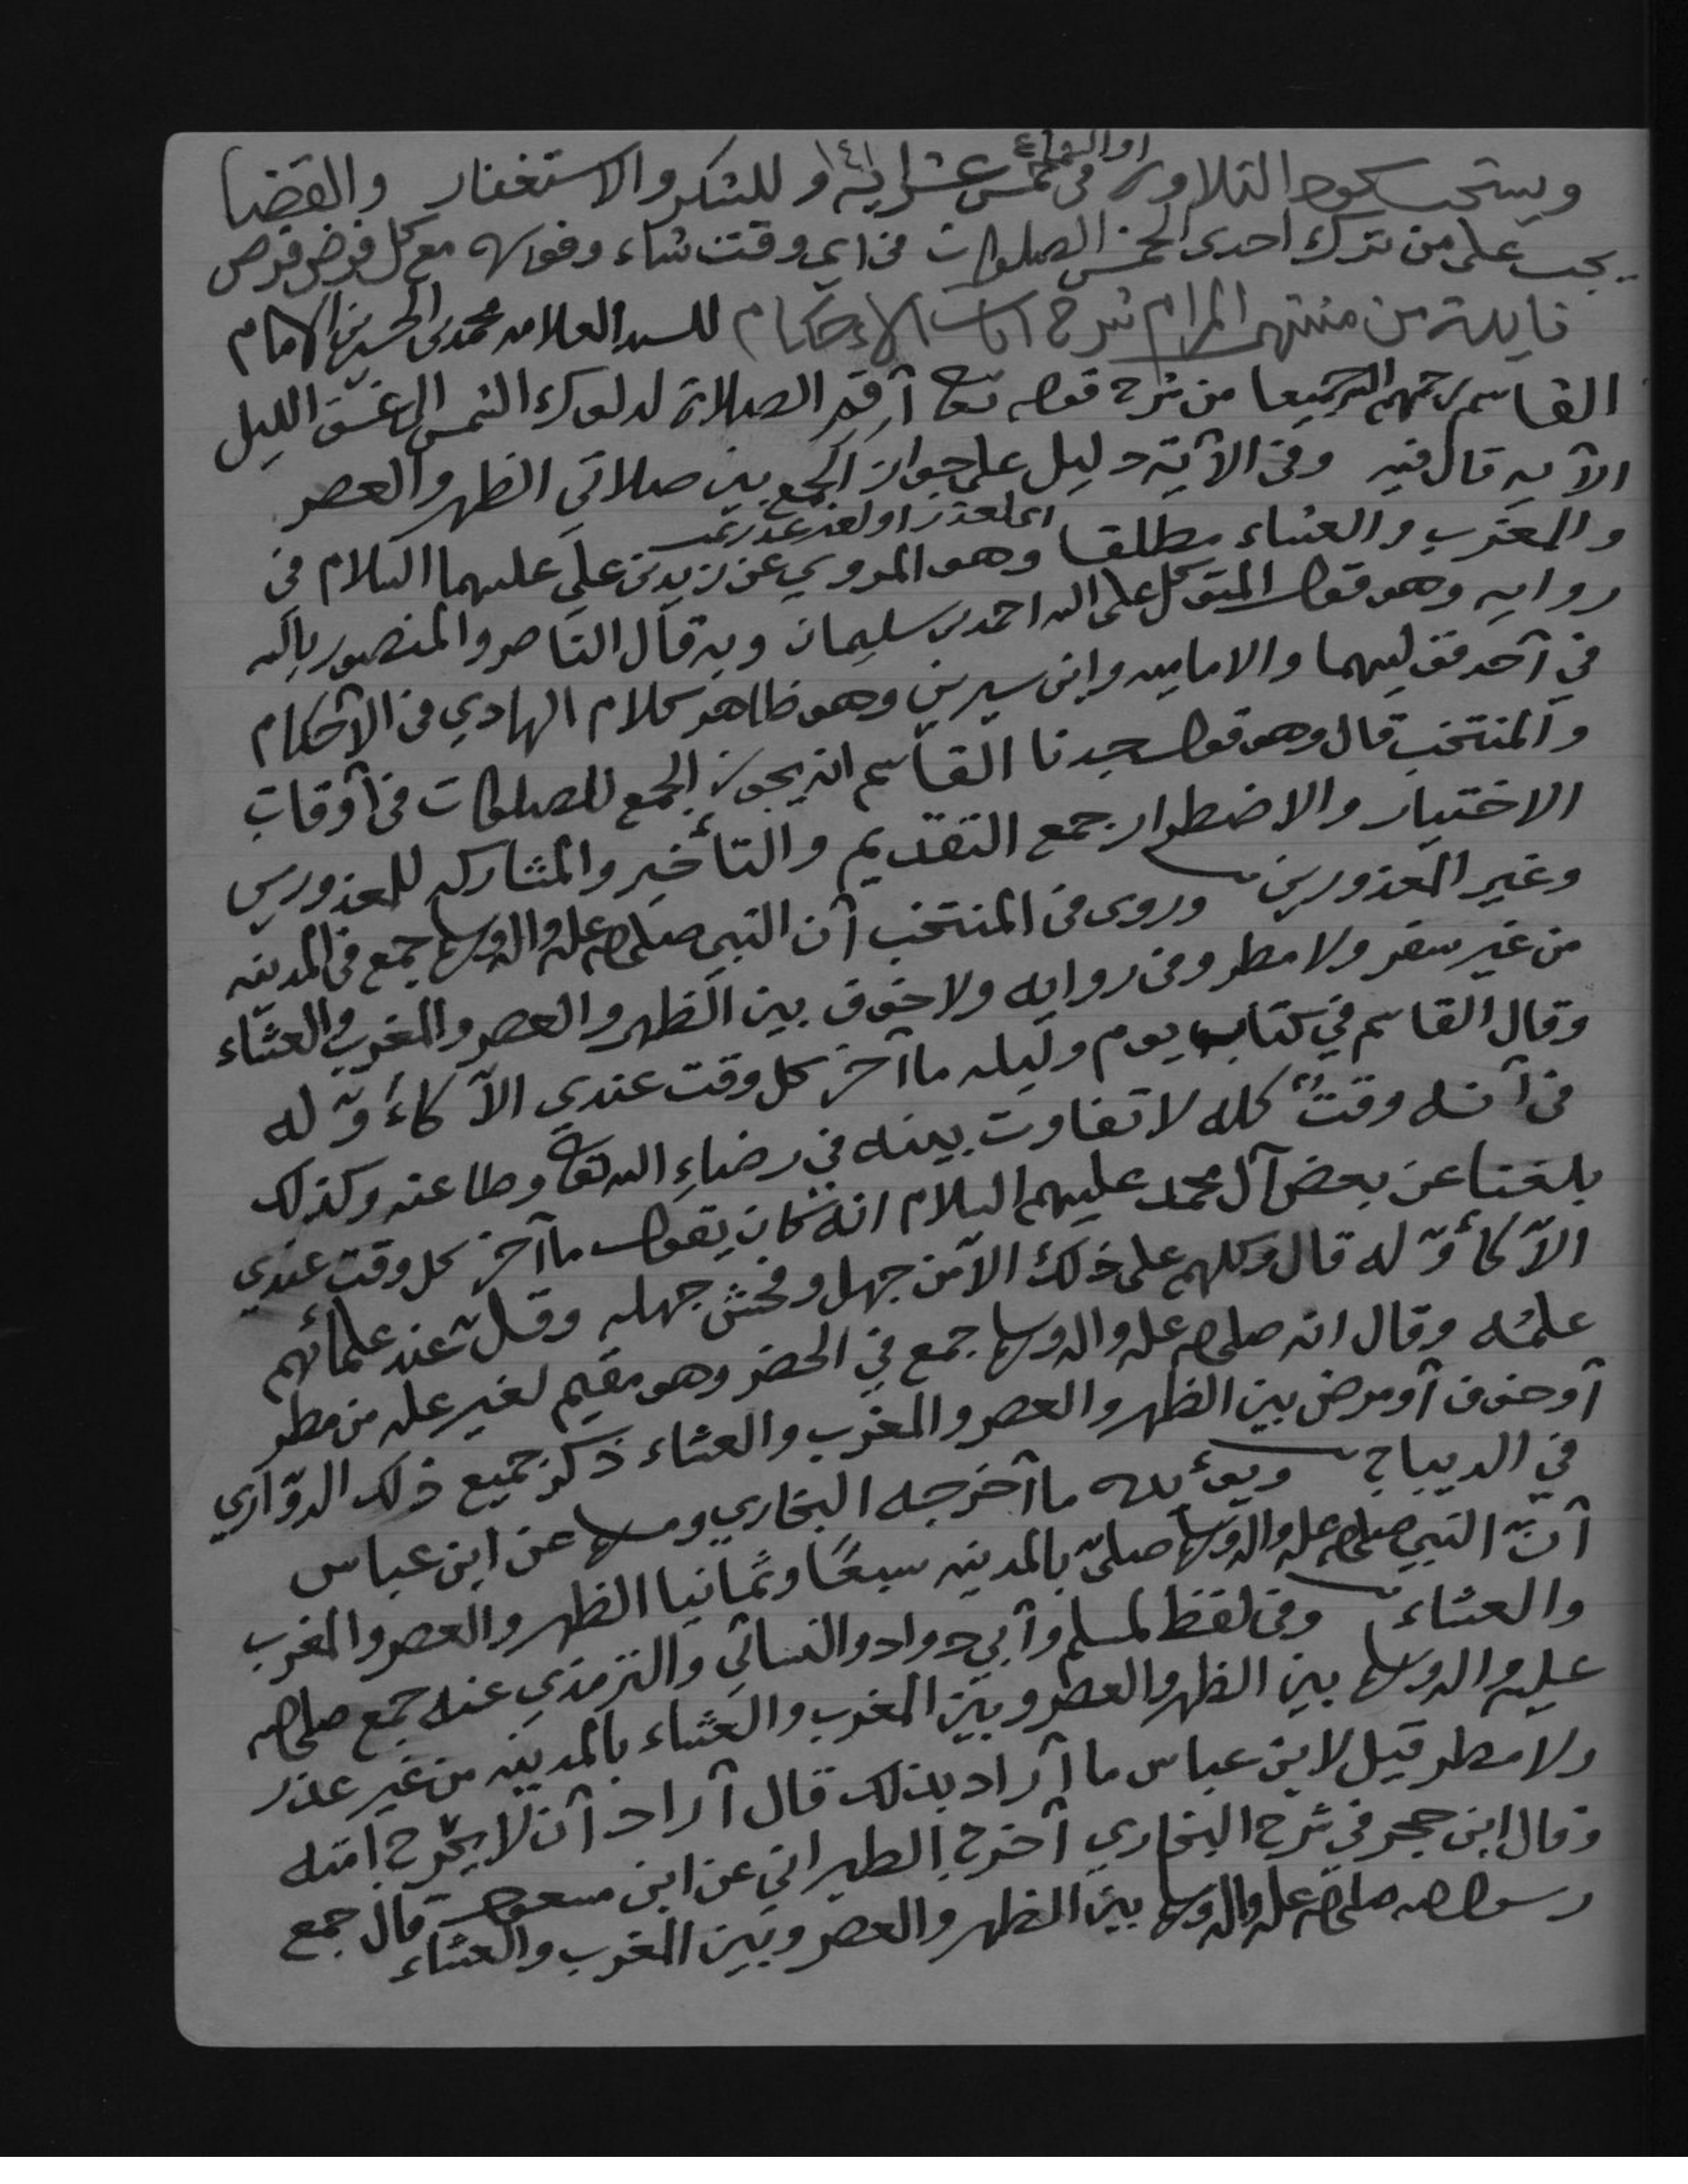 ويستحب سجود التلاوة في خمس عشر اية او السماع ١٤١ و للشكر والاستغفار والقضا
يجب على من ترك احدى الخمس الصلوات في اي وقت شاء وفوره مع كل فرض فرض
فايدة من منتهى المرام شرح ايات الاحكام للسيد العلامه محمد بن الحسين بن الامام
القاسم رحمهم الله جميعا من شرح قوله تعا أقم الصلاة لدلوك الشمس الى غسق الليل
الآيه قال فيه وفي الآية دليل على جواز الجمع بين صلاتي الظهر والعصر
والمغرب والعشاء مطلقا اي لعذر او لغير عذر تمت وهو المروي عن زيد بن علي عليهما السلام في
روايه وهو قول المتوكل على الله احمد بن سليمان وبه قال الناصر والمنصور بالله
في أحد قوليهما والاماميه وابن سيرين وهو ظاهر كلام الهادي في الأحكام
والمنتخب قال وهو قول جدنا القاسم انه يجوز الجمع للصلوات في أوقات
الاختيار والاضطرار جمع التقديم والتأخير والمشاركه للمعذورين
وغير المعذورين وروى في المنتخب أن النبي صلى الله عليه واله وسلم جمع في المدينه
من غير سفر ولا مطر وفي روايه ولا خوف بين الظهر والعصر والمغرب والعشاء
وقال القاسم في كتاب يوم وليله ما آخر كل وقت عندي الاّ كأوّله
في أنه وقتٌ كله لا تفاوت بينه في رضاءِ الله تعا وطاعته وكذلك
بلغنا عن بعض آل محمد عليهم السلام انه كان يقول ما آخر كل وقت عندي
الاّ كأوّله قال وكلهم على ذلك الاّ من جهل وفحش جهله وقلّ عند علمائهم
علمُه وقال انه صلى الله عليه واله وسلم جمع في الحضر وهو مقيم لغير عله من مطر
أو خوف أو مرض بين الظهر والعصر والمغرب والعشاء ذكر جميع ذلك الدوّاري
في الديباج ويؤيده ما أخرجه البخاري ومسلم عن ابن عباس
أنّ النبي صلى الله عليه واله وسلم صلىّ بالمدينه سبعًا وثمانيا الظهر والعصر والمغرب
والعشاء وفي لفظ لمسلم وأبي داود والنسائي والترمذي عنه جمع صلى الله
عليه واله وسلم بين الظهر والعصر وبين المغرب والعشاء بالمدينه من غير عذر
ولا مطر قيل لابن عباس ما أراد بذلك قال أراد أن لا يحرّج امّته
وقال ابن حجر في شرح البخاري أخرج الطبراني عن ابن مسعود قال جمع
رسول الله صلى الله عليه واله وسلم بين الظهر والعصر وبين المغرب والعشاء